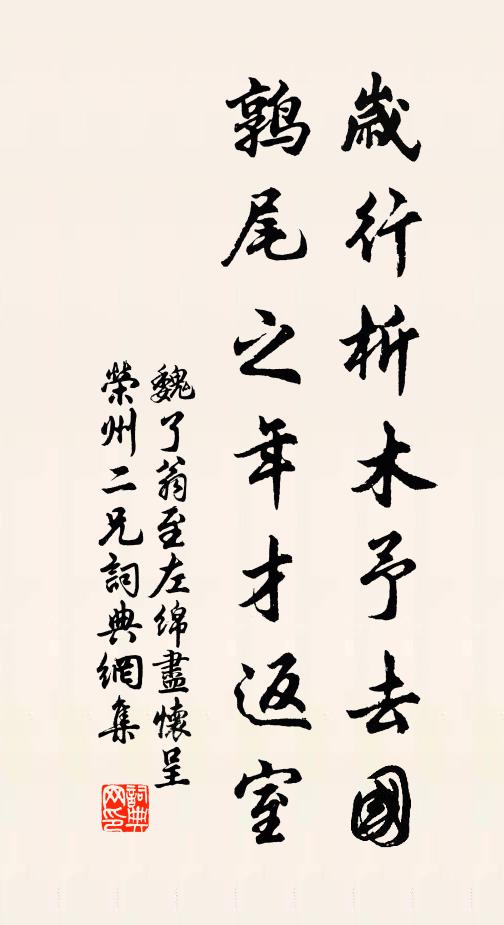 歲行析木予去國
鶉尾之年才返室
魏了翁至左綿盡懷呈
榮州二兄詞典網集
詞典網印